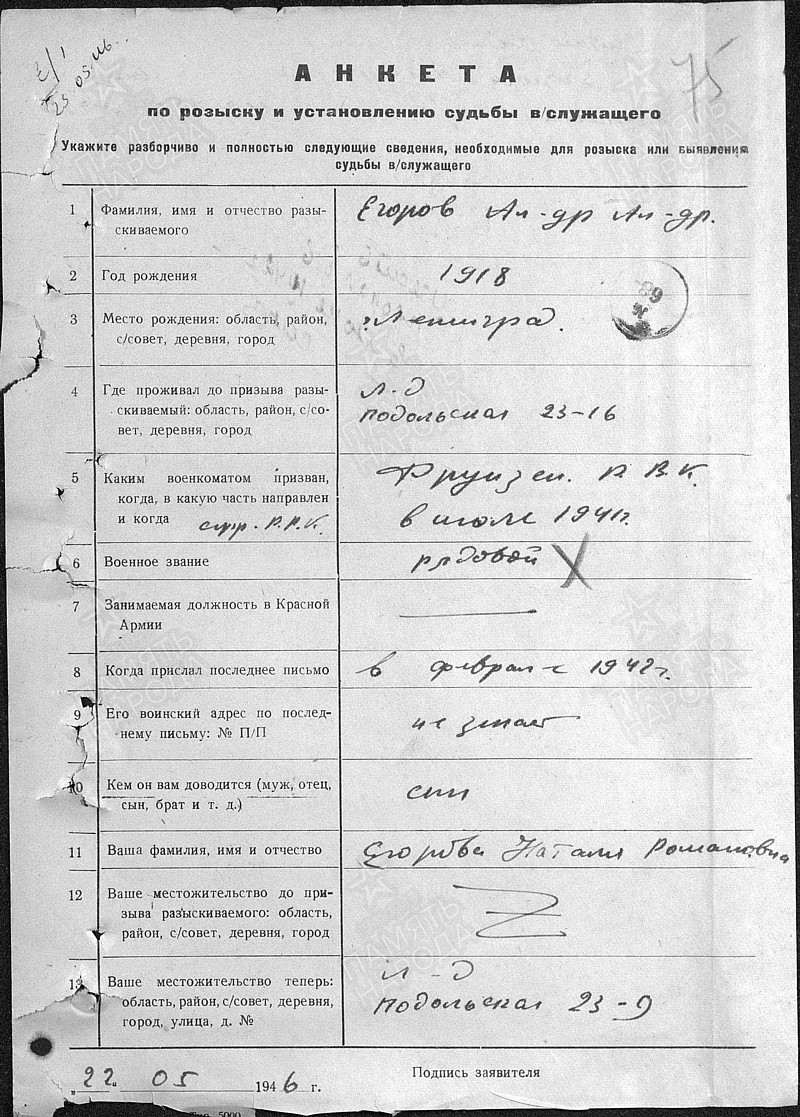 25.05.46.
75
АНКЕТА
по розыску и установлению судьбы в/служащего
Укажите разборчиво и полностью следующие сведения, необходимые для розыска или выявления
судьбы в/служащего
1 Фамилия, имя и отчество разы-
скиваемого
Егоров Ал-др Ал-др.
2 Год рождения
1918
3 Место рождения: область, район,
с/совет, деревня, город
г. Ленинград.
4 Где проживал до призыва разы-
скиваемый: область, район, с/со-
вет, деревня, город
Л-д
Подольская 23-16
5 Каким военкоматом призван,
когда, в какую часть направлен
и когда
Фрунзен. Р.В.К.
в июле 1941г.
6 Военное звание
рядовой
7 Занимаемая должность в Красной
Армии
8 Когда прислал последнее письмо
в феврале 1942г.
9 Его воинский адрес по послед-
нему письму: № П/П
не знает
10 Кем он вам доводится (муж, отец,
сын, брат и т. д.)
сын
11 Ваша фамилия, имя и отчество
Егорова Наталия Романовна
12 Ваше местожительство до при-
зыва разыскиваемого: область,
район, с/совет, деревня, город
13 Ваше местожительство теперь:
область, район, с/совет, деревня,
город, улица, д. №
Л-д
Подольская 23-9
Подпись заявителя
„22" 05 1946 г.
5000
ПАМЯТЬ НАРОДА